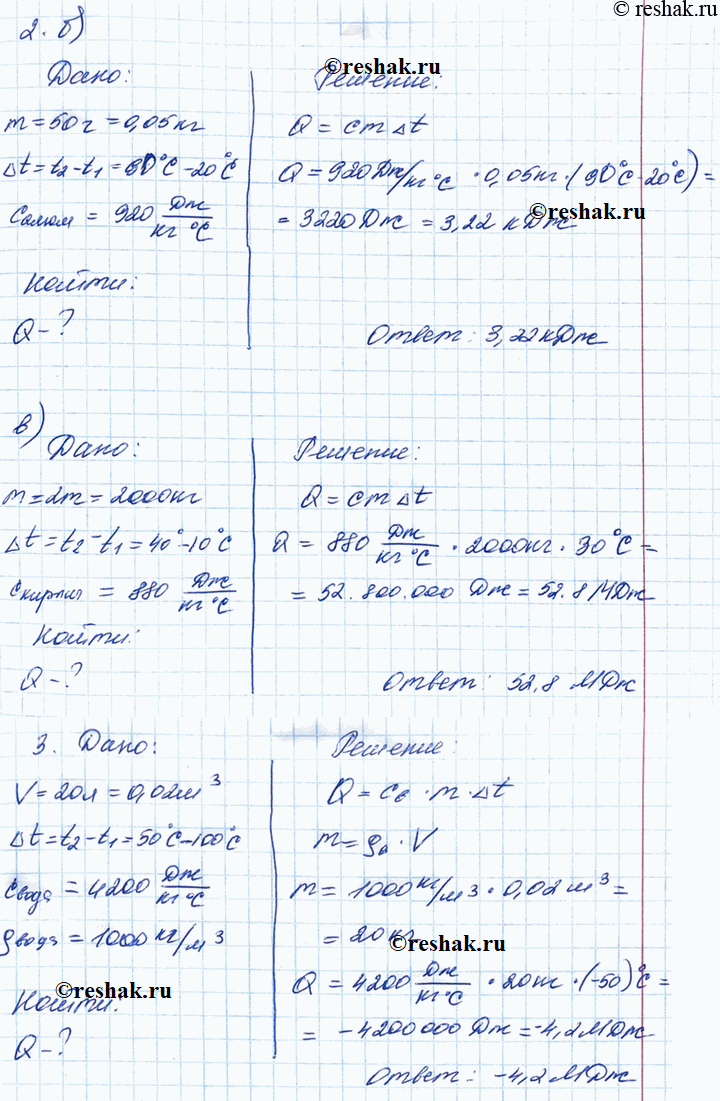 ©reshak.ru
2. б)
©reshak.ru
Дано:
m = 50 г = 0,05 кг
Δt = t₂ - t₁ = 90°C - 20°C
Cалюм = 920 Дж/кг °C
Найти:
Q - ?
Решение:
Q = cmΔt
Q = 920 Дж/кг °C · 0,05 кг · (90°C - 20°C) =
©reshak.ru
= 3220 Дж = 3,22 кДж
Ответ: 3,22 кДж
в)
Дано:
m = 2т = 2000 кг
Δt = t₂ - t₁ = 40° - 10°C
Cкирпич = 880 Дж/кг °C
Найти:
Q - ?
Решение:
Q = cmΔt
Q = 880 Дж/кг °C · 2000 кг · 30°C =
= 52.800.000 Дж = 52.8 МДж
Ответ: 52,8 МДж
3. Дано:
V = 20л = 0,02 м³
Δt = t₂ - t₁ = 50°C - 100°C
Cвода = 4200 Дж/кг °C
ρвода = 1000 кг/м³
©reshak.ru
Найти:
Q - ?
Решение:
Q = Cв · m · Δt
m = ρв · V
m = 1000 кг/м³ · 0,02 м³ =
= 20 кг
©reshak.ru
Q = 4200 Дж/кг °C · 20 кг · (-50)°C =
= -4200 000 Дж = -4,2 МДж
Ответ: -4,2 МДж